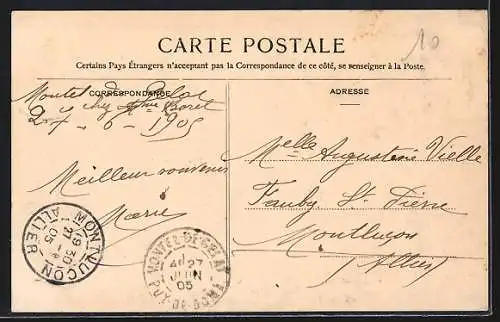 10
CARTE POSTALE
Certains Pays Étrangers n'acceptant pas la Correspondance de ce côté, se renseigner à la Poste.
CORRESPONDANCE
ADRESSE
Montel de Gelat
chez Mme
27 - 6 - 1905
Meilleur souvenir
Marie
Melle Augustine Vielle
Faubg St Pierre
Montluçon
(Allier)
MONTLUÇON
19 30
27 - 6
05
ALLIER
MONTEL-DE-GELAT
27
JUIN
05
PUY-DE-DOME